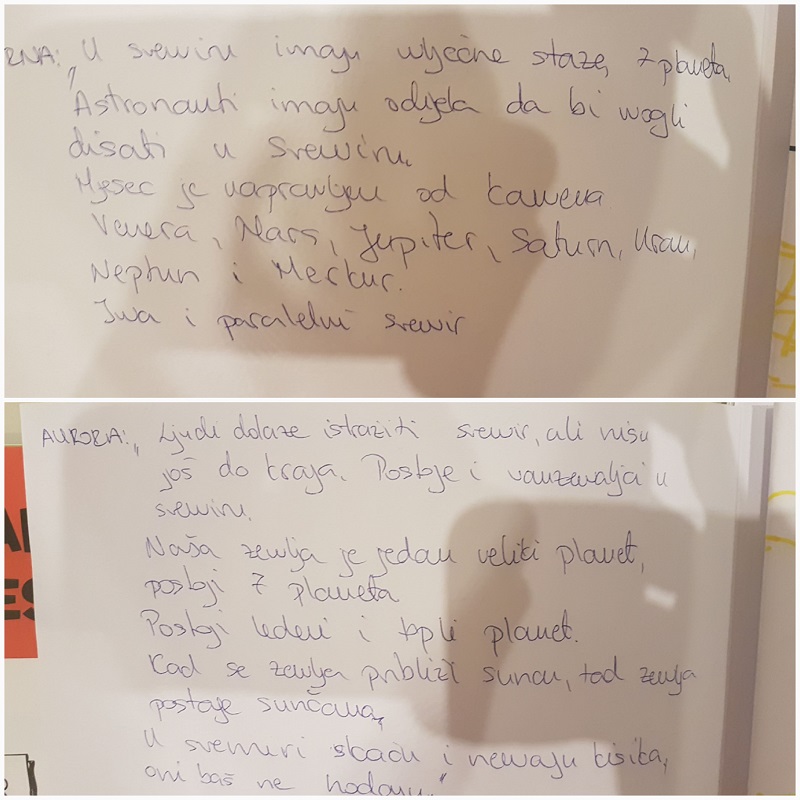 RNA: "U svemiru imaju mlječne staze, 7 planeta,
Astronauti imaju odijela da bi mogli
disati u svemiru.
Mjesec je napravljen od kamena
Venera, Mars, Jupiter, Saturn, Uran,
Neptun i Merkur.
Ima i paralelni svemir
AURORA: "Ljudi dolaze istražiti svemir, ali nisu
još do kraja. Postoje i vanzemaljci u
svemiru.
Naša zemlja je jedan veliki planet,
postoji 7 planeta
Postoji ledeni i topli planet.
Kad se zemlja približi suncu, tad zemlja
postaje sunčana,
U svemiri skaču i nemaju kisika,
oni baš ne hodaju."